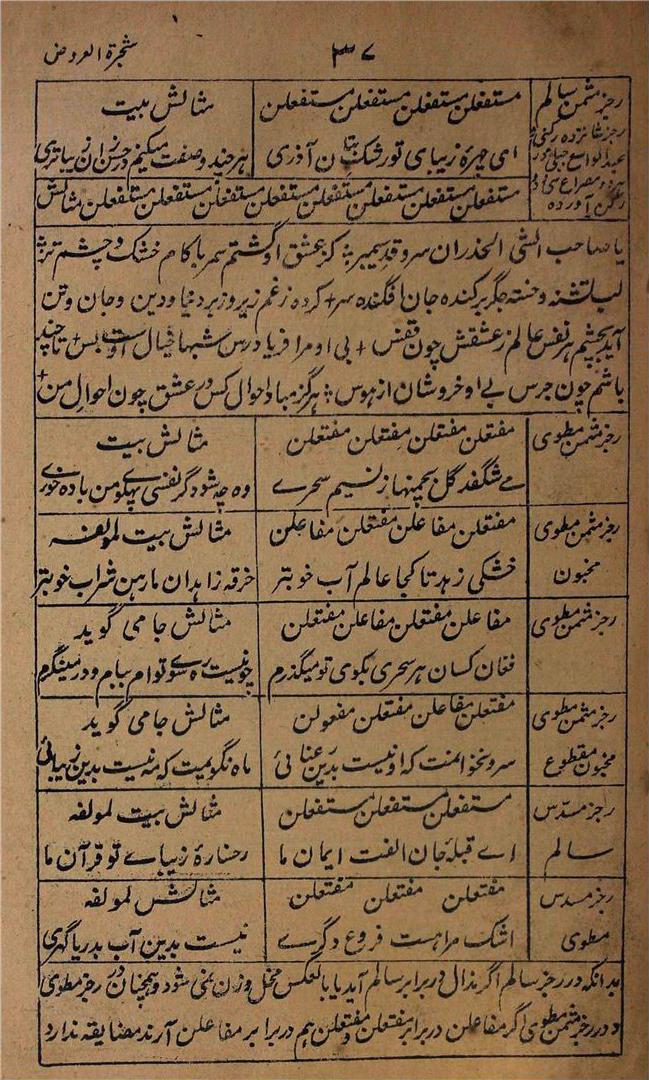 ۳۷ شجرة العروض
رجز مثمن سالم مستفعلن مستفعلن مستفعلن مستفعلن مثالش بیت
رجز شانزده رکنی
عبدالواسع جبلی
ای چهرهٔ زیبای تو رشک بتان آذری هر چند وصفت میکنم در حسن ازان زیباتری
مستفعلن مستفعلن مستفعلن مستفعلن مستفعلن مستفعلن مستفعلن مستفعلن مثالش
یا صاحب الشی الحذران سرو قد سیمبر کز عشق او گشتم سمر با کام خشک و چشم تر
لب تشنه و خسته جگر برکنده جان افگنده سر + کرده ز غم زیر و زبر دنیا و دین و جان و تن
آید بچشم هر نفس عالم ز عشقش چون قفس + بی او مرا فریادرس شبها خیال اوست بس + تا چند
باشم چون جرس بے او خروشان از هوس هرگز مباد احوال کس در عشق چون احوال من +
رجز مثمن مطوی مفتعلن مفتعلن مفتعلن مفتعلن مثالش بیت
مے شگفد گل بچمنها ز نسیم سحرے وه چه شود گر نفسی پهلوے من باده خورے
رجز مثمن مطوی مفتعلن مفاعلن مفتعلن مفاعلن مثالش بیت لمولفه
مخبون خشکی زهد تا کجا عالم آب خوبتر خرقه زاهدان ما رهن شراب خوبتر
رجز مثمن مطوی مفاعلن مفتعلن مفاعلن مفتعلن مثالش جامی گوید
فغان کسان هر سحری بکوی تو میگذرم چو نیست ره سوے تو ام ببام و در مینگرم
رجز مثمن مطوی مفتعلن مفاعلن مفتعلن مفعولن مثالش جامی گوید
مخبون مقطوع سرو نخوانمت که او نیست بدین رعنائی ماه نگویمت که مه نیست بدین زیبائی
راجز مسدس مستفعلن مستفعلن مستفعلن مثالش بیت لمولفه
سالم اے قبلهٔ جان الفت ایمان ما رخسارهٔ زیباے تو قرآن ما
رجز مسدس مفتعلن مفتعلن مفتعلن مثالش لمولفه
مطوی اشک مراهست فروع دگرے نیست بدین آب بدریا گهری
بدانکه در رجز سالم اگر مذال در برابر سالم آید یا بالعکس مخل وزن نمی شود و همچنان در رجز مطوی
و در رجز مثمن مطوی اگر مفاعلن در برابر مفتعلن و مفتعلن هم در برابر مفاعلن آرند مضایقه ندارد